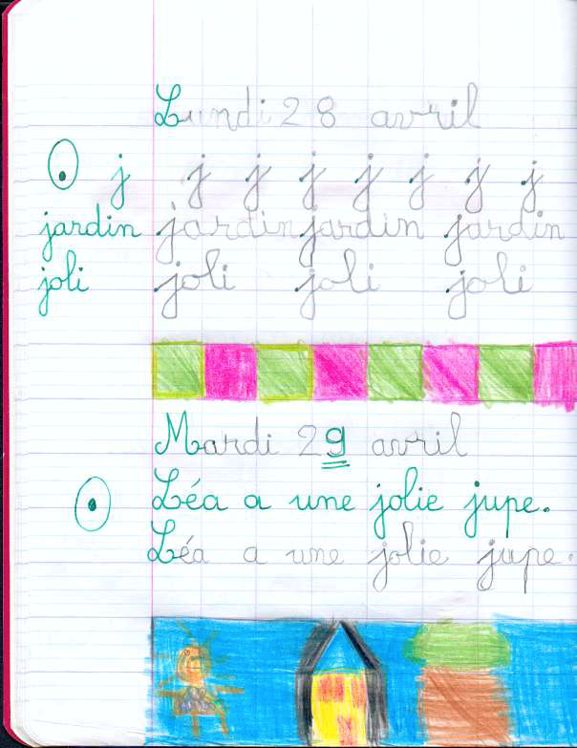 Lundi 28 avril
j j j j j j j j
jardin jardin jardin jardin
joli joli joli joli
Mardi 29 avril
Léa a une jolie jupe.
Léa a une jolie jupe.